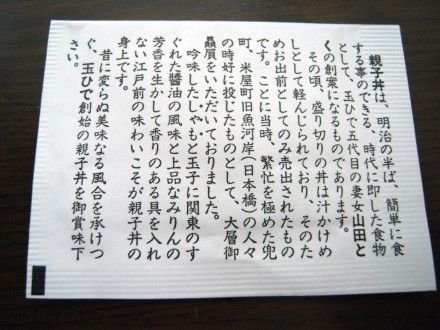 親子丼は、明治の半ば、簡単に食
する事のできる、時代に即した食物
として、玉ひで五代目の妻女山田と
くの創案になるものであります。
その頃、盛り切りの丼は汁かけめ
しとして軽んじられており、そのた
めお出前としてのみ売出されたもの
です。ことに当時、繁忙を極めた兜
町、米屋町旧魚河岸(日本橋)の人々
の時好に投じたものとして、大層御
贔屓をいただいておりました。
吟味したしゃもと玉子に関東のす
ぐれた醤油の風味と上品なみりんの
芳香を生かして香りのある具を入れ
ない江戸前の味わいこそが親子丼の
身上です。
昔に変らぬ美味なる風合を承けつ
ぐ、玉ひで創始の親子丼を御賞味下
さい。